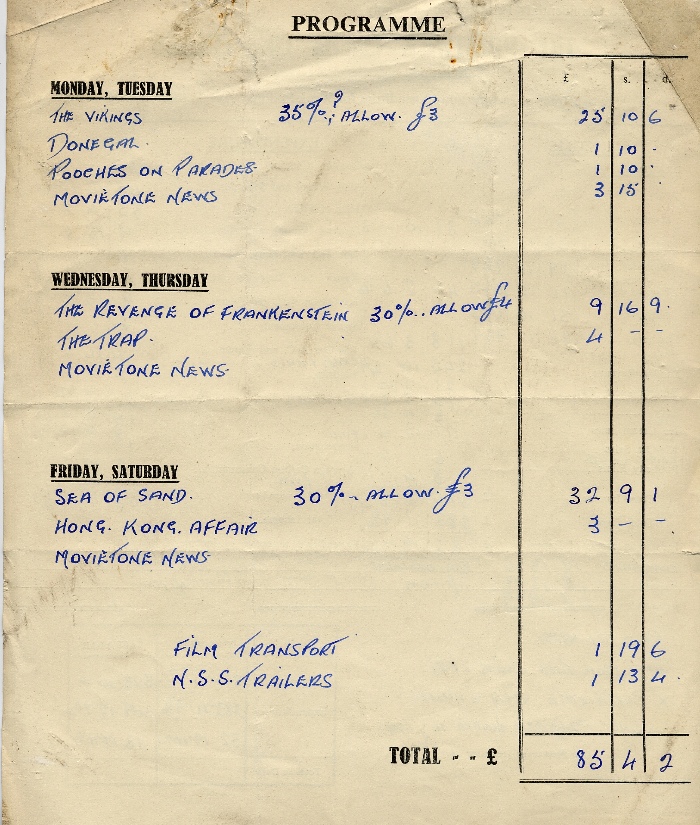 PROGRAMME
£ s. d.
MONDAY, TUESDAY
THE VIKINGS 35%? ALLOW. £3 25 10 6
DONEGAL. 1 10 -
POOCHES ON PARADES 1 10 -
MOVIETONE NEWS 3 15 -
WEDNESDAY, THURSDAY
THE REVENGE OF FRANKENSTEIN 30%.. ALLOW £4 9 16 9.
THE TRAP. 4 - -
MOVIETONE NEWS
FRIDAY, SATURDAY
SEA OF SAND. 30%. ALLOW. £3 32 9 1
HONG. KONG. AFFAIR 3 - -
MOVIETONE NEWS
FILM TRANSPORT 1 19 6
N.S.S. TRAILERS 1 13 4.
TOTAL - - £ 85 4 2